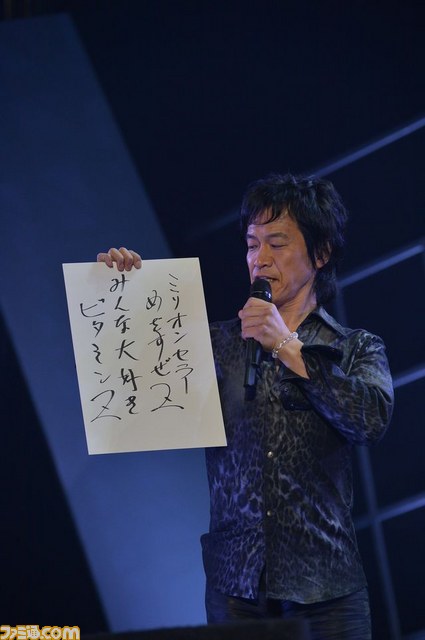 ミリオンセラー
めざすぜヌ
みんな大好き
ビタミンヌ
ファミ通.com